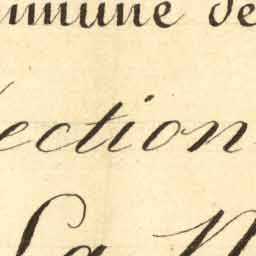 mmune de
ection
La N